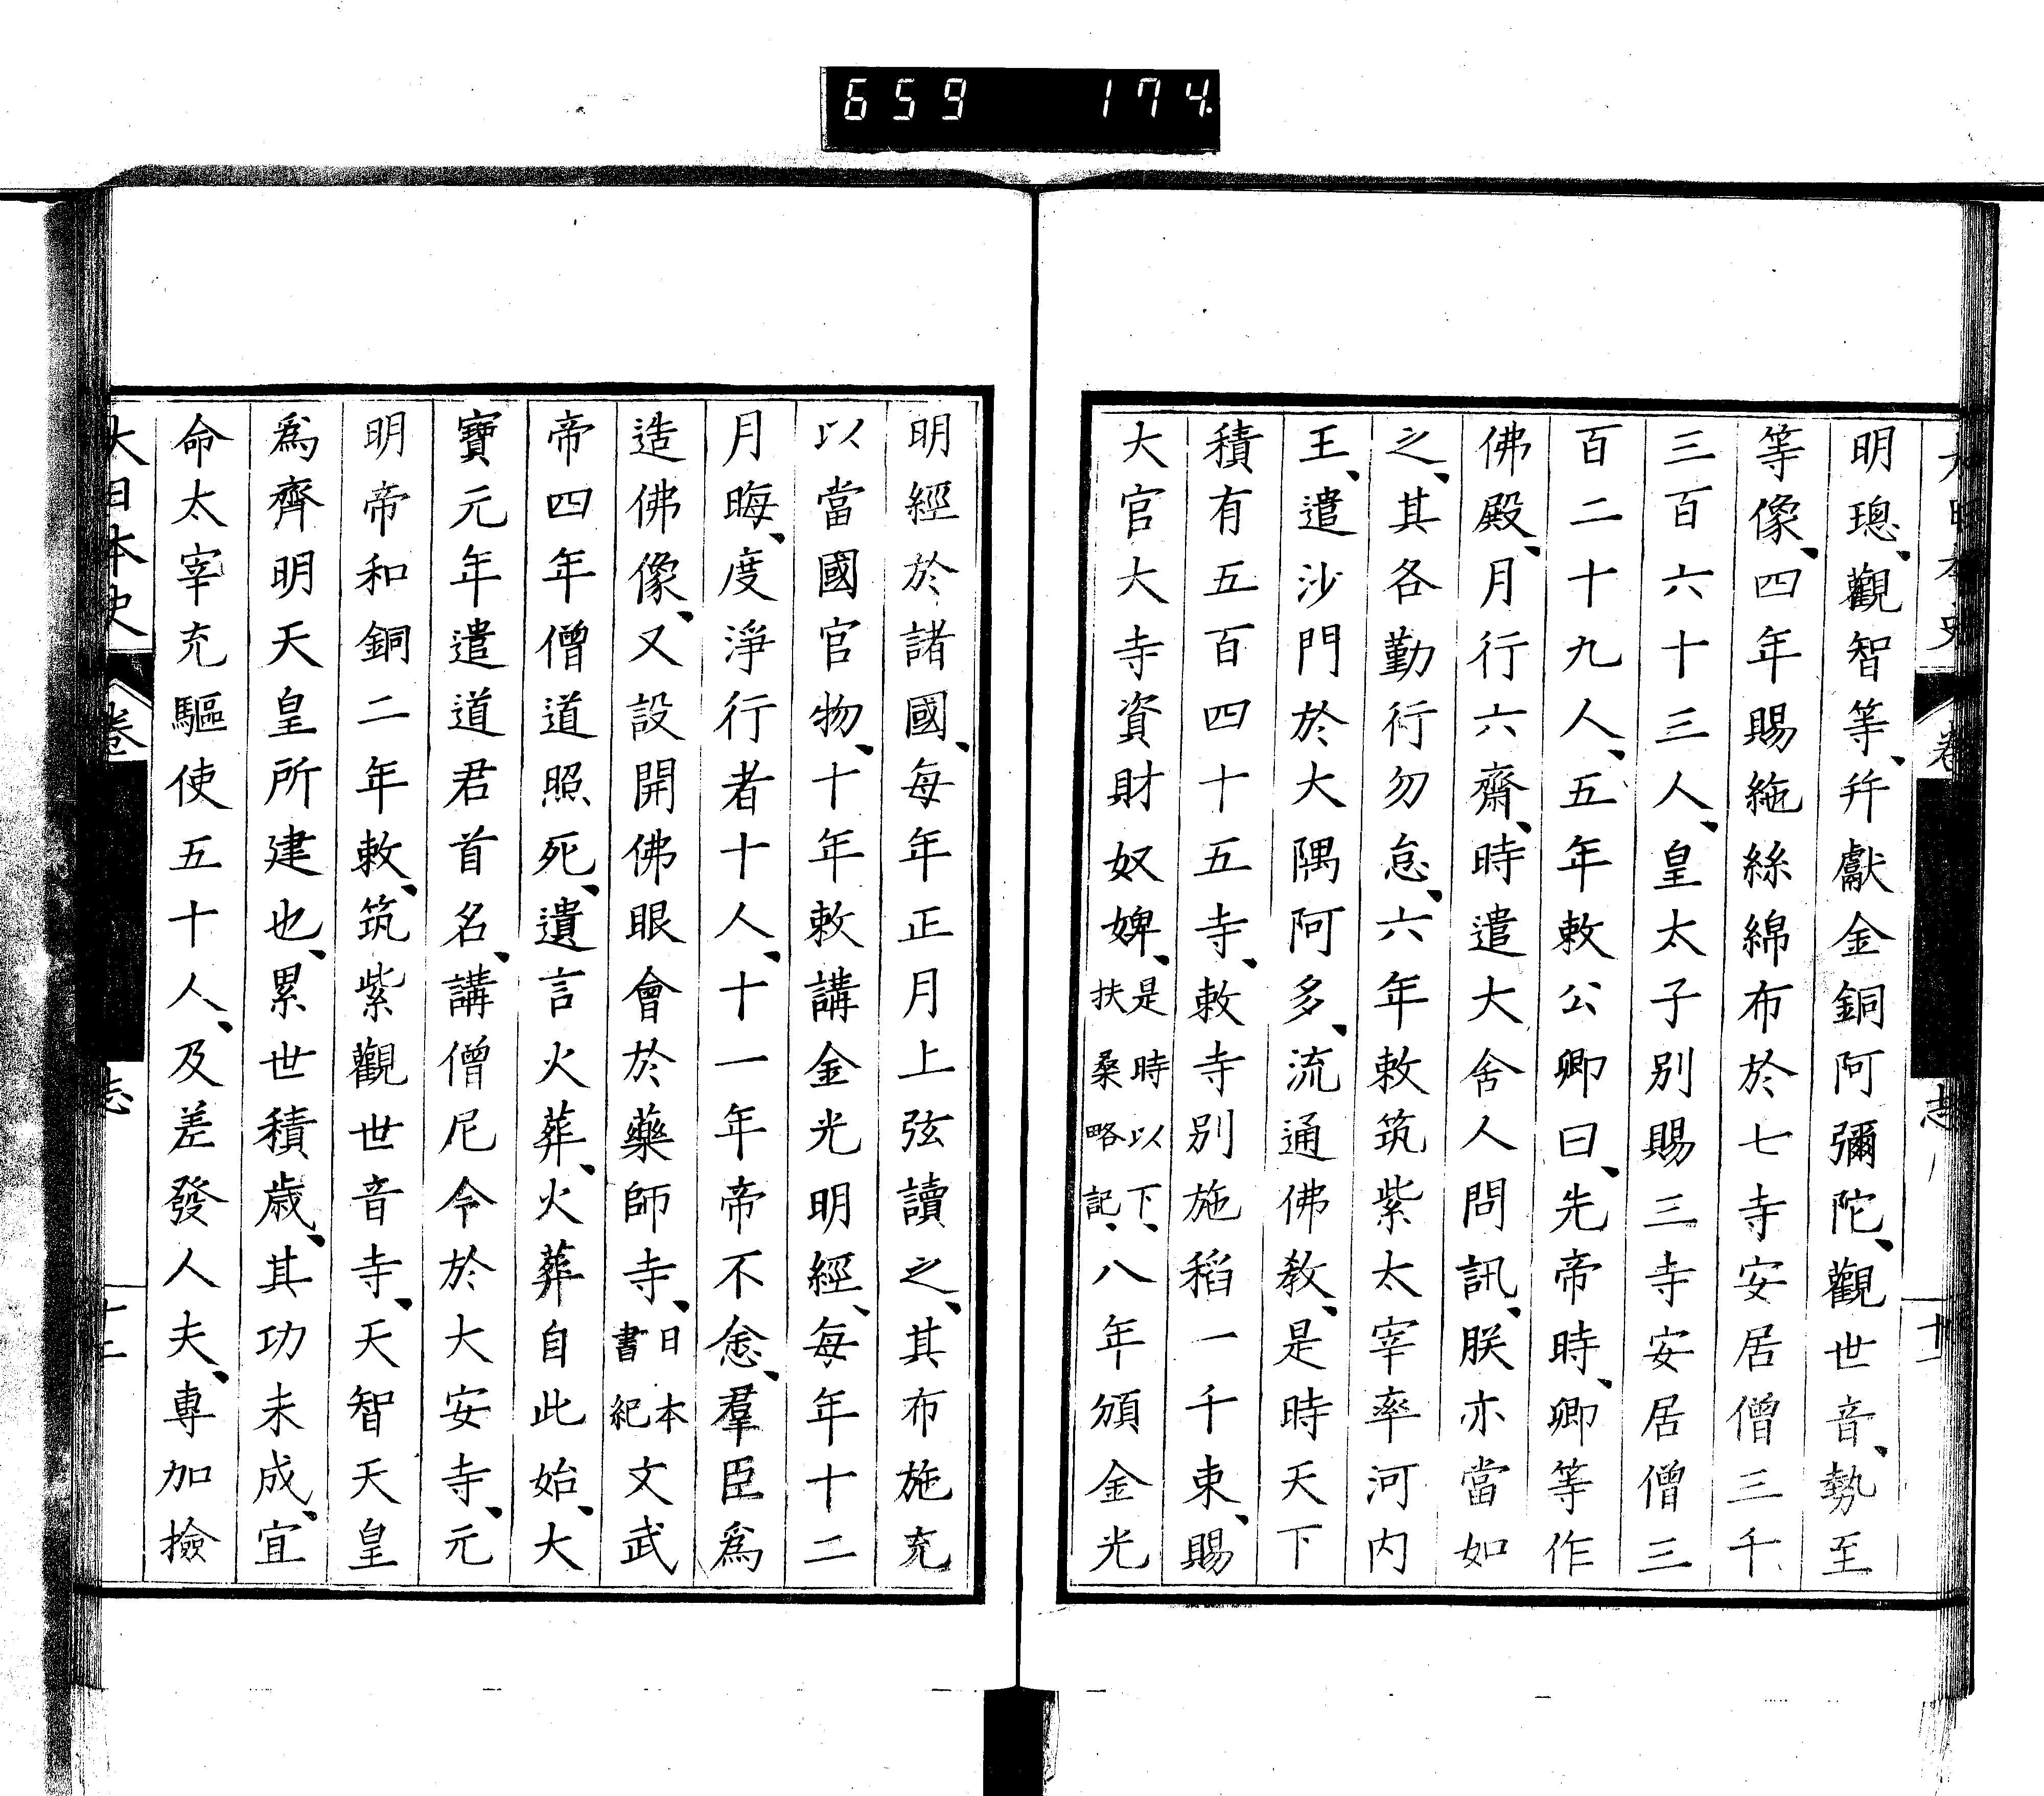 659 174
大日本史 卷 志 十一
明聰、觀智等、幷獻金銅阿彌陀、觀世音、勢至
等像、四年賜絁絲綿布於七寺安居僧三千
三百六十三人、皇太子別賜三寺安居僧三
百二十九人、五年敕公卿曰、先帝時、卿等作
佛殿、月行六齋、時遣大舍人問訊、朕亦當如
之、其各勤行勿怠、六年敕筑紫太宰率河内
王、遣沙門於大隅阿多、流通佛教、是時天下
積有五百四十五寺、敕寺別施稻一千束、賜
大官大寺資財奴婢、是時以下、扶桑略記、八年頒金光
明經於諸國、每年正月上弦讀之、其布施充
以當國官物、十年敕講金光明經、每年十二
月晦、度淨行者十人、十一年帝不悆、羣臣爲
造佛像、又設開佛眼會於藥師寺、日本書紀文武
帝四年僧道照死、遺言火葬、火葬自此始、大
寶元年遣道君首名、講僧尼令於大安寺、元
明帝和銅二年敕、筑紫觀世音寺、天智天皇
爲齊明天皇所建也、累世積歲、其功未成、宜
命太宰充驅使五十人、及差發人夫、專加撿
大日本史 卷 志 十二